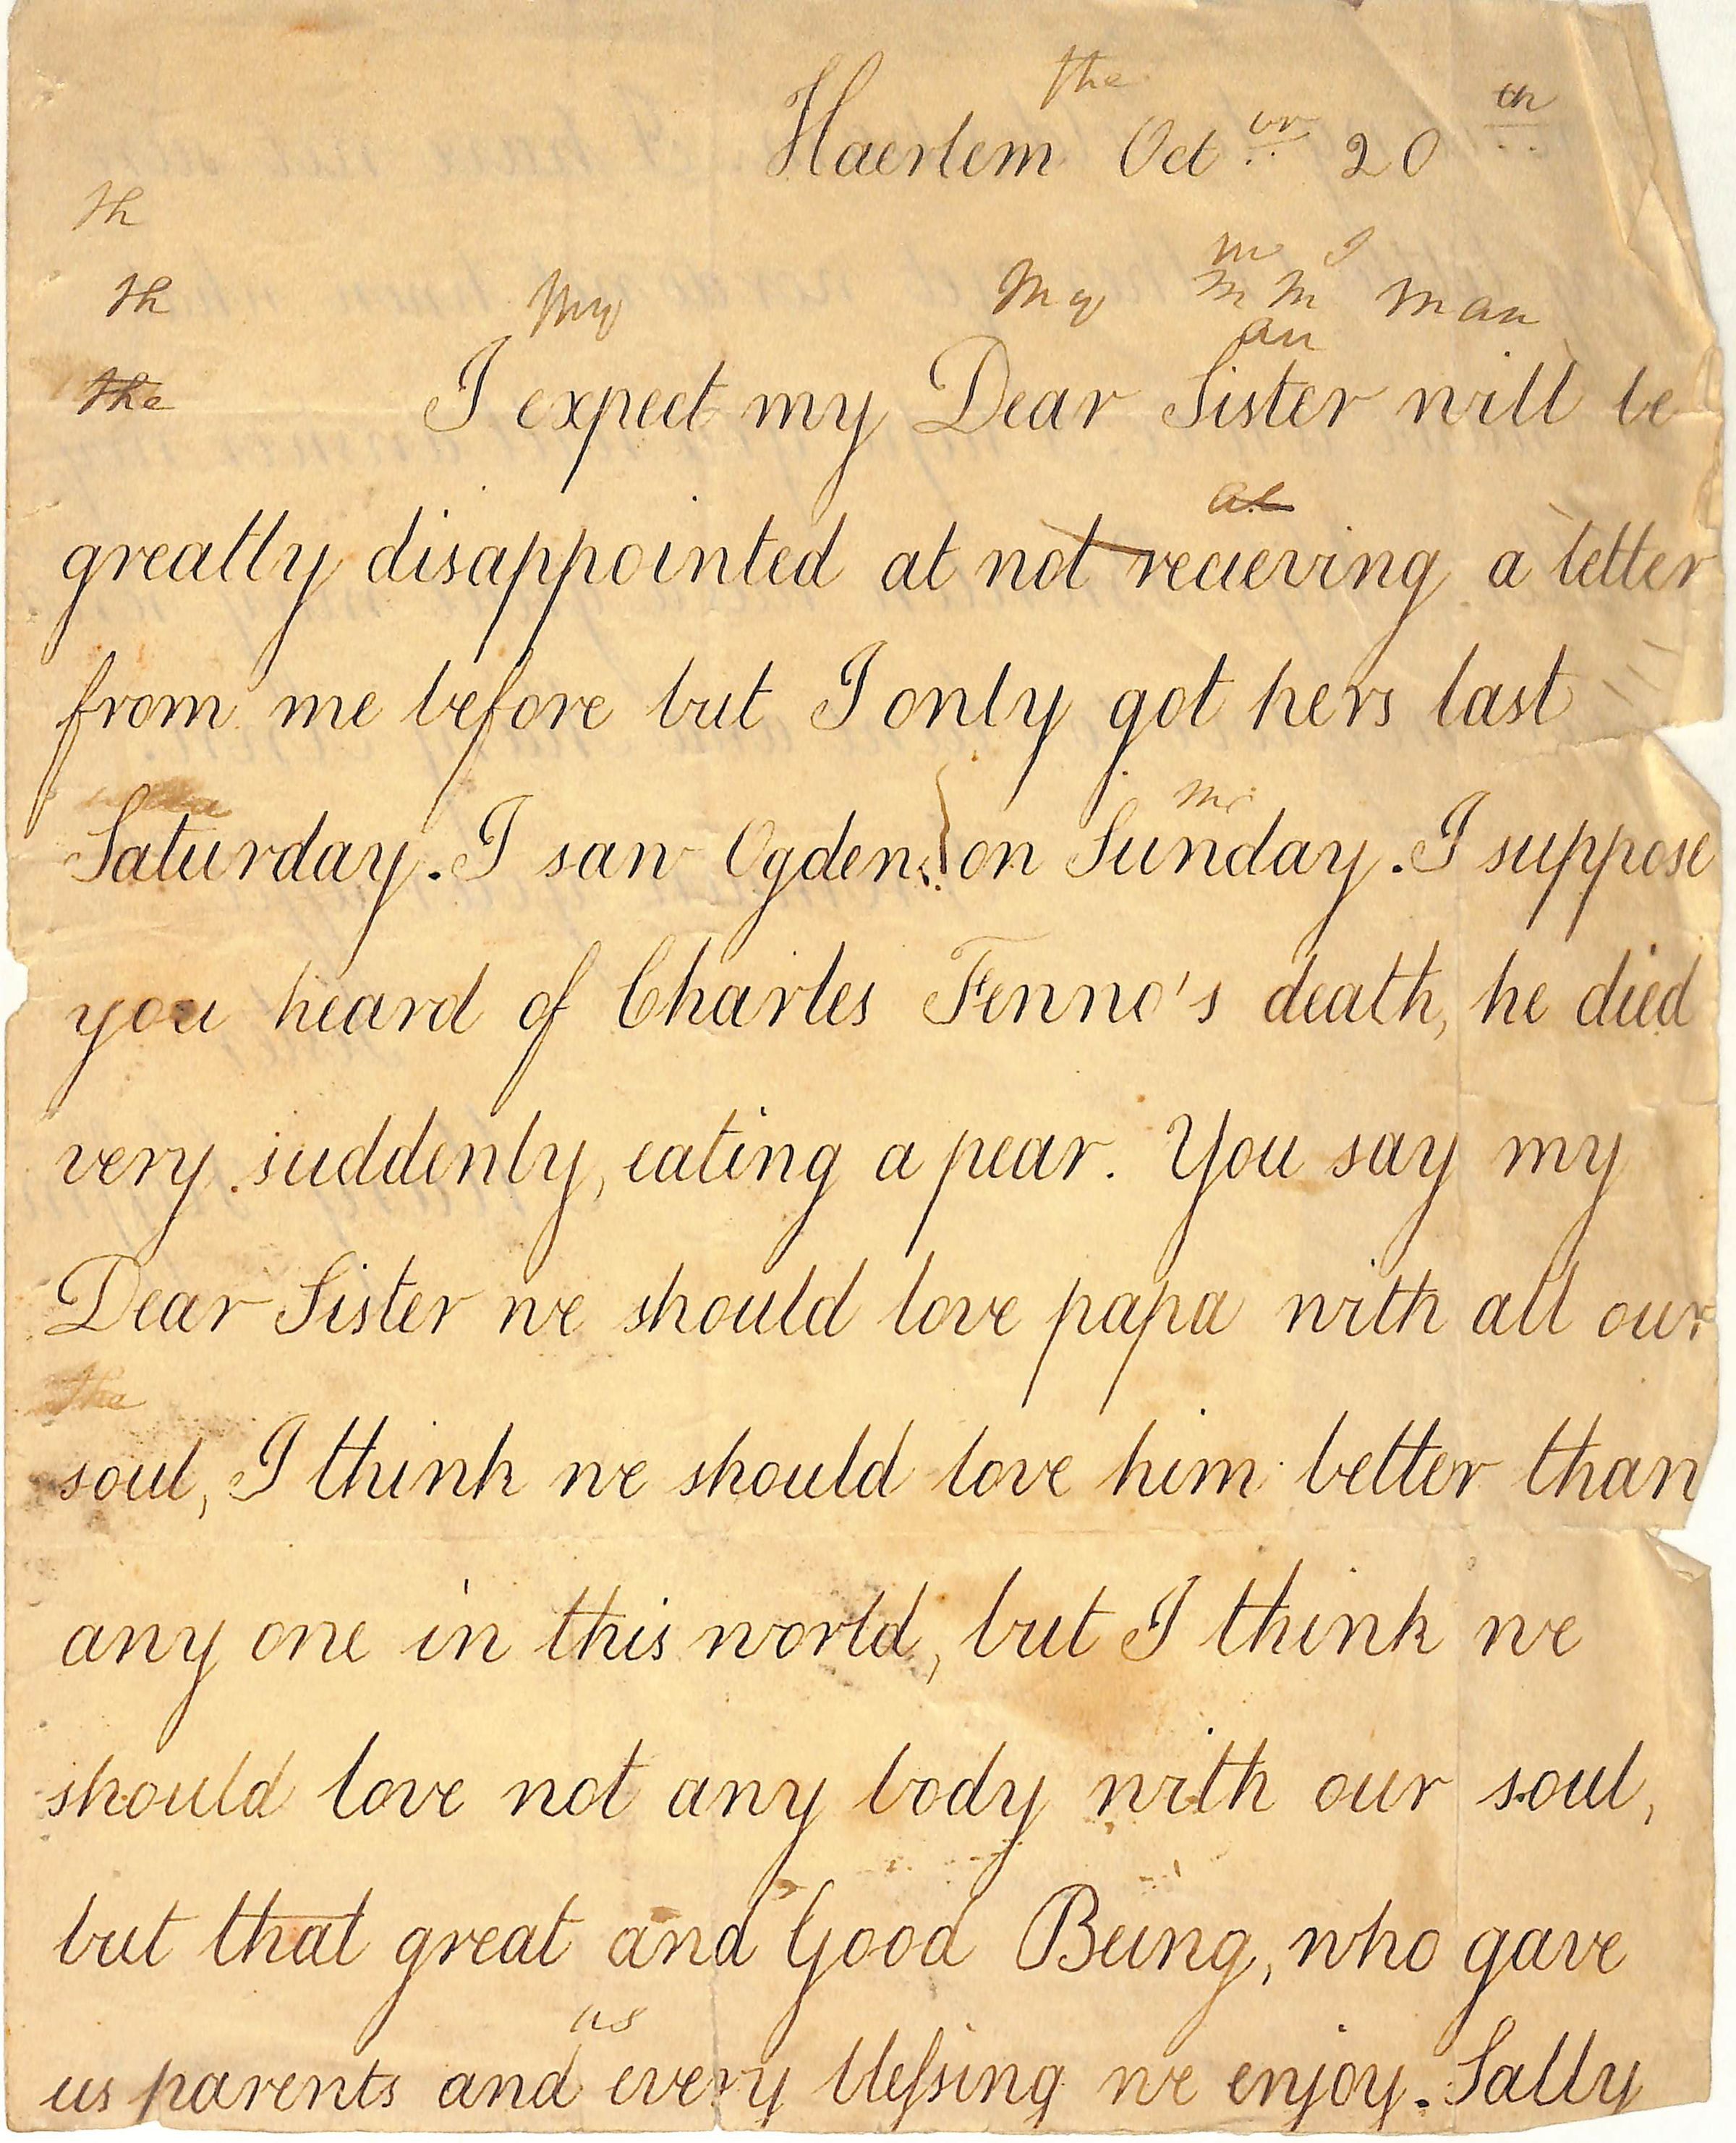 the
Haerlem Oct br 20 th
th
m I
th My My m m man
an
the I expect my Dear Sister will be
at
greatly disappointed at not recieving a letter
from me before but I only got hers last
Mr
Saturday. I saw Ogden on Sunday. I suppose
you heard of Charles Fenno's death, he died
very suddenly, eating a pear. You say my
Dear Sister we should love papa with all our
the
soul, I think we should love him better than
any one in this world, but I think we
should love not any body with our soul,
but that great and Good Being, who gave
us
us parents and every blefsing we enjoy. Sally